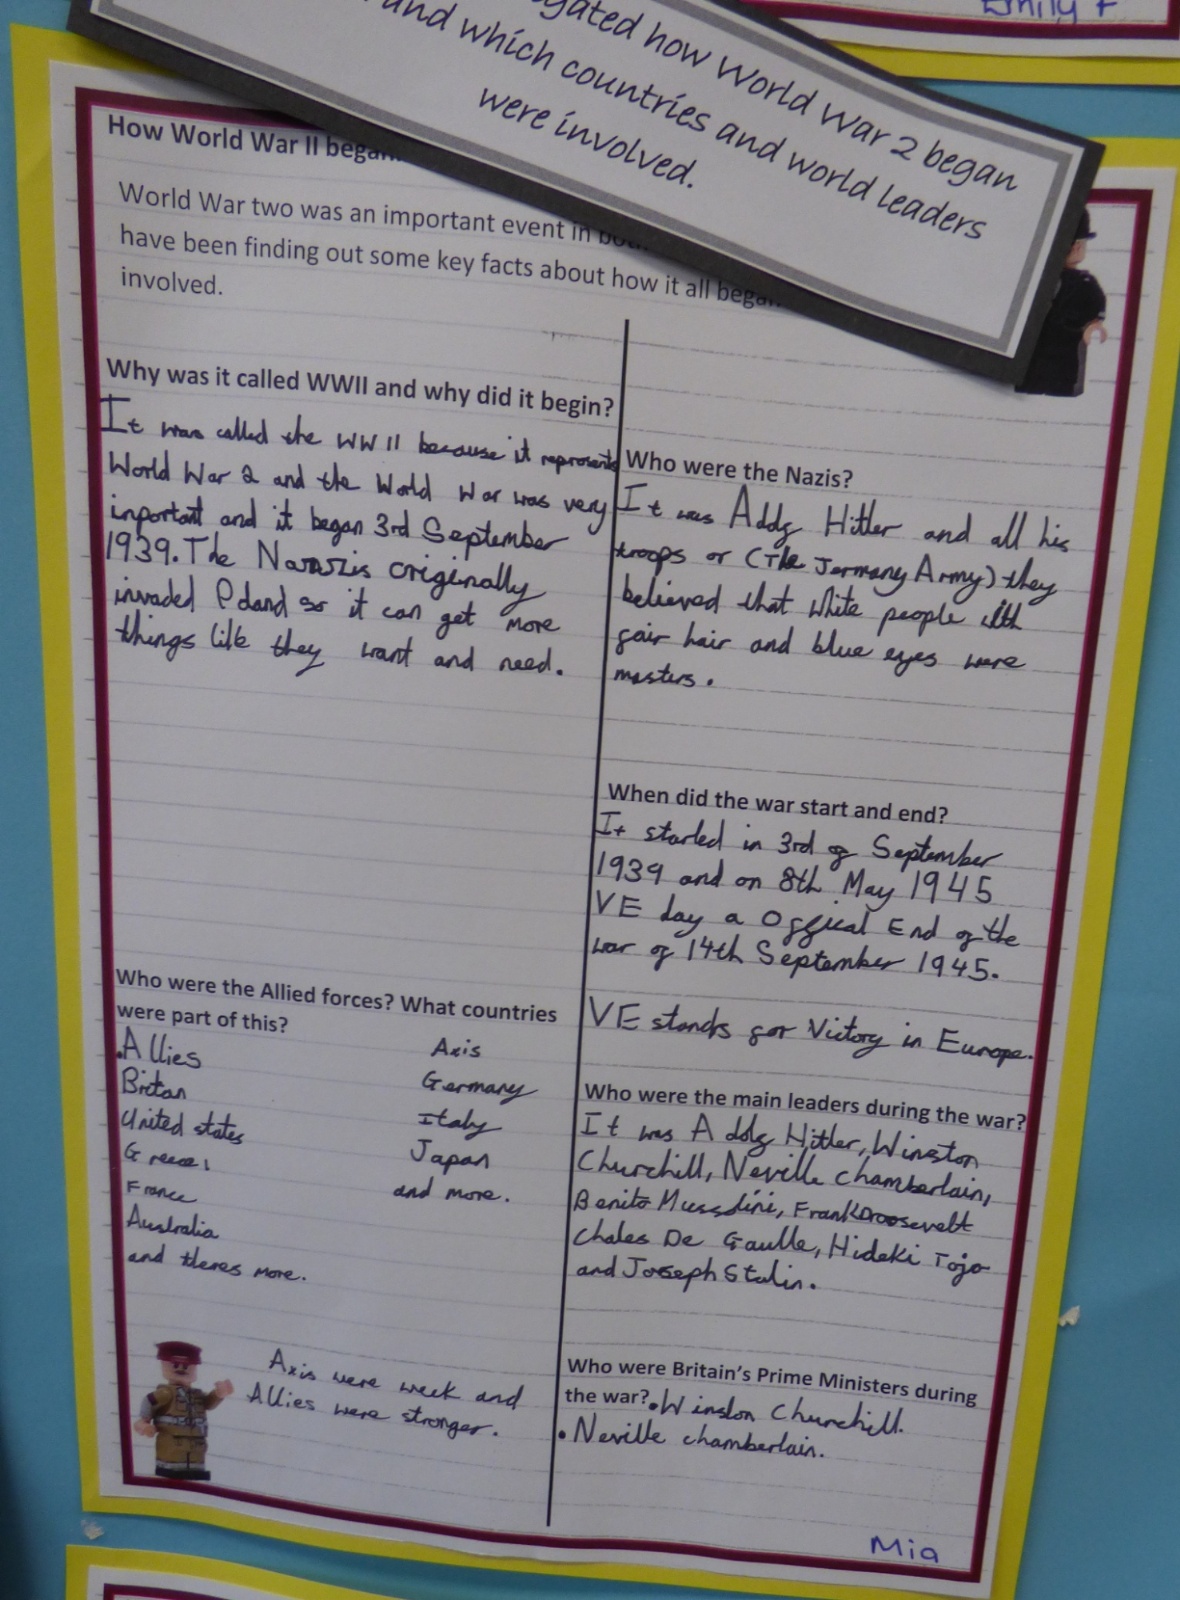 Emily F
gated how World War 2 began
and which countries and world leaders
were involved.
How World War II began
World War two was an important event in
have been finding out some key facts about how it all began
involved.
Why was it called WWII and why did it begin?
It was called the WW II because it represents
World War 2 and the World War was very
inportant and it began 3rd September
1939. The originally
invaded Poland so it can get more
things like they want and need.
Who were the Allied forces? What countries
were part of this?
.Allies
Britan
United states
France
Australia
and theres more.
Axis
Germany
Italy
Japan
and more.
Axis were week and
Allies were stronger.
Who were the Nazis?
It was Addg Hitler and all his
troops or (The Jermany Army) they
believed that white people with
fair hair and blue eyes were
masters.
When did the war start and end?
It started in 3rd of September
1939 and on 8th May 1945
VE day a Offical End of the
war of 14th September 1945.
VE stands for Victory in Europe.
Who were the main leaders during the war?
It was Adolf Hitler, Winston
Churchill, Neville chamberlain,
Benito Mussolini, FrankDroosevelt
chales De Gaulle, Hideki Tojo
and Joseph Stalin.
Who were Britain's Prime Ministers during
the war? •Winston Churchill.
• Neville chamberlain.
Mia